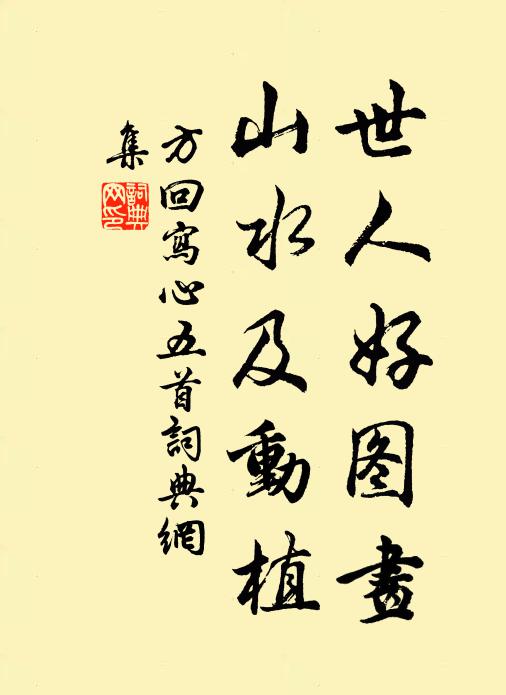 世人好图畫
山水及動植
方回寫心五首詞典網
集
詞典
网印